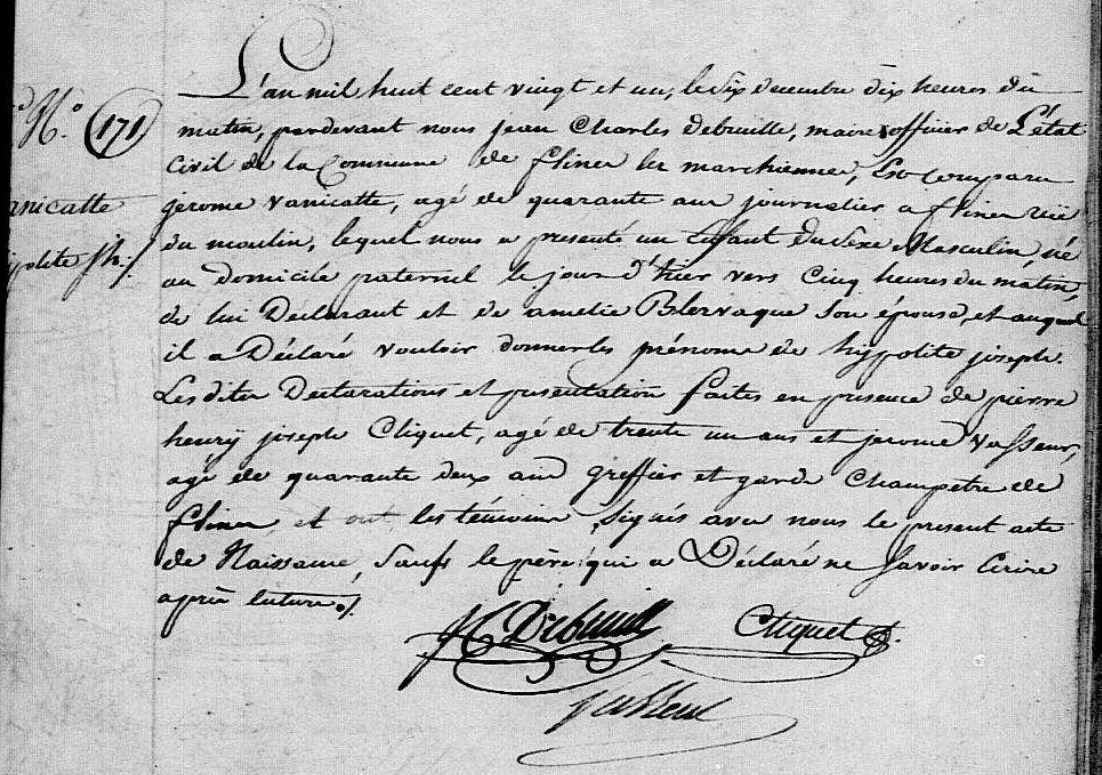 L'an mil huit cent vingt et un, le six decembre dix heures du
N.° 171
matin, pardevant nous jean Charles debuille, maire & officier de L'état
Civil de la Commune de flines les marchiennes, Est comparu
anicatte
jerome vanicatte, agé de quarante ans journalier a flines rüe
du moulin, lequel nous a presenté un Enfant du Sexe Masculin, né
polite jh./
au domicile paternel le jour d'hier vers Cinq heures du matin,
de lui Déclarant et de amelie Blervaque Son épouse, et auquel
il a Déclaré vouloir donner les prénoms de hypolite joseph.
Les dites Declarations et presentation faites en presence de pierre
henrÿ joseph Cliquet, agé de trente un ans et jerome Vasseur,
agé de quarante deux ans greffier et garde Champetre de
flines et ont les témoins Signés avec nous le present acte
de Naissance, Saufs le père qui a Déclaré ne Savoir Ecrire
après lecture ./.
JC Debuill Cliquet
Vasseur